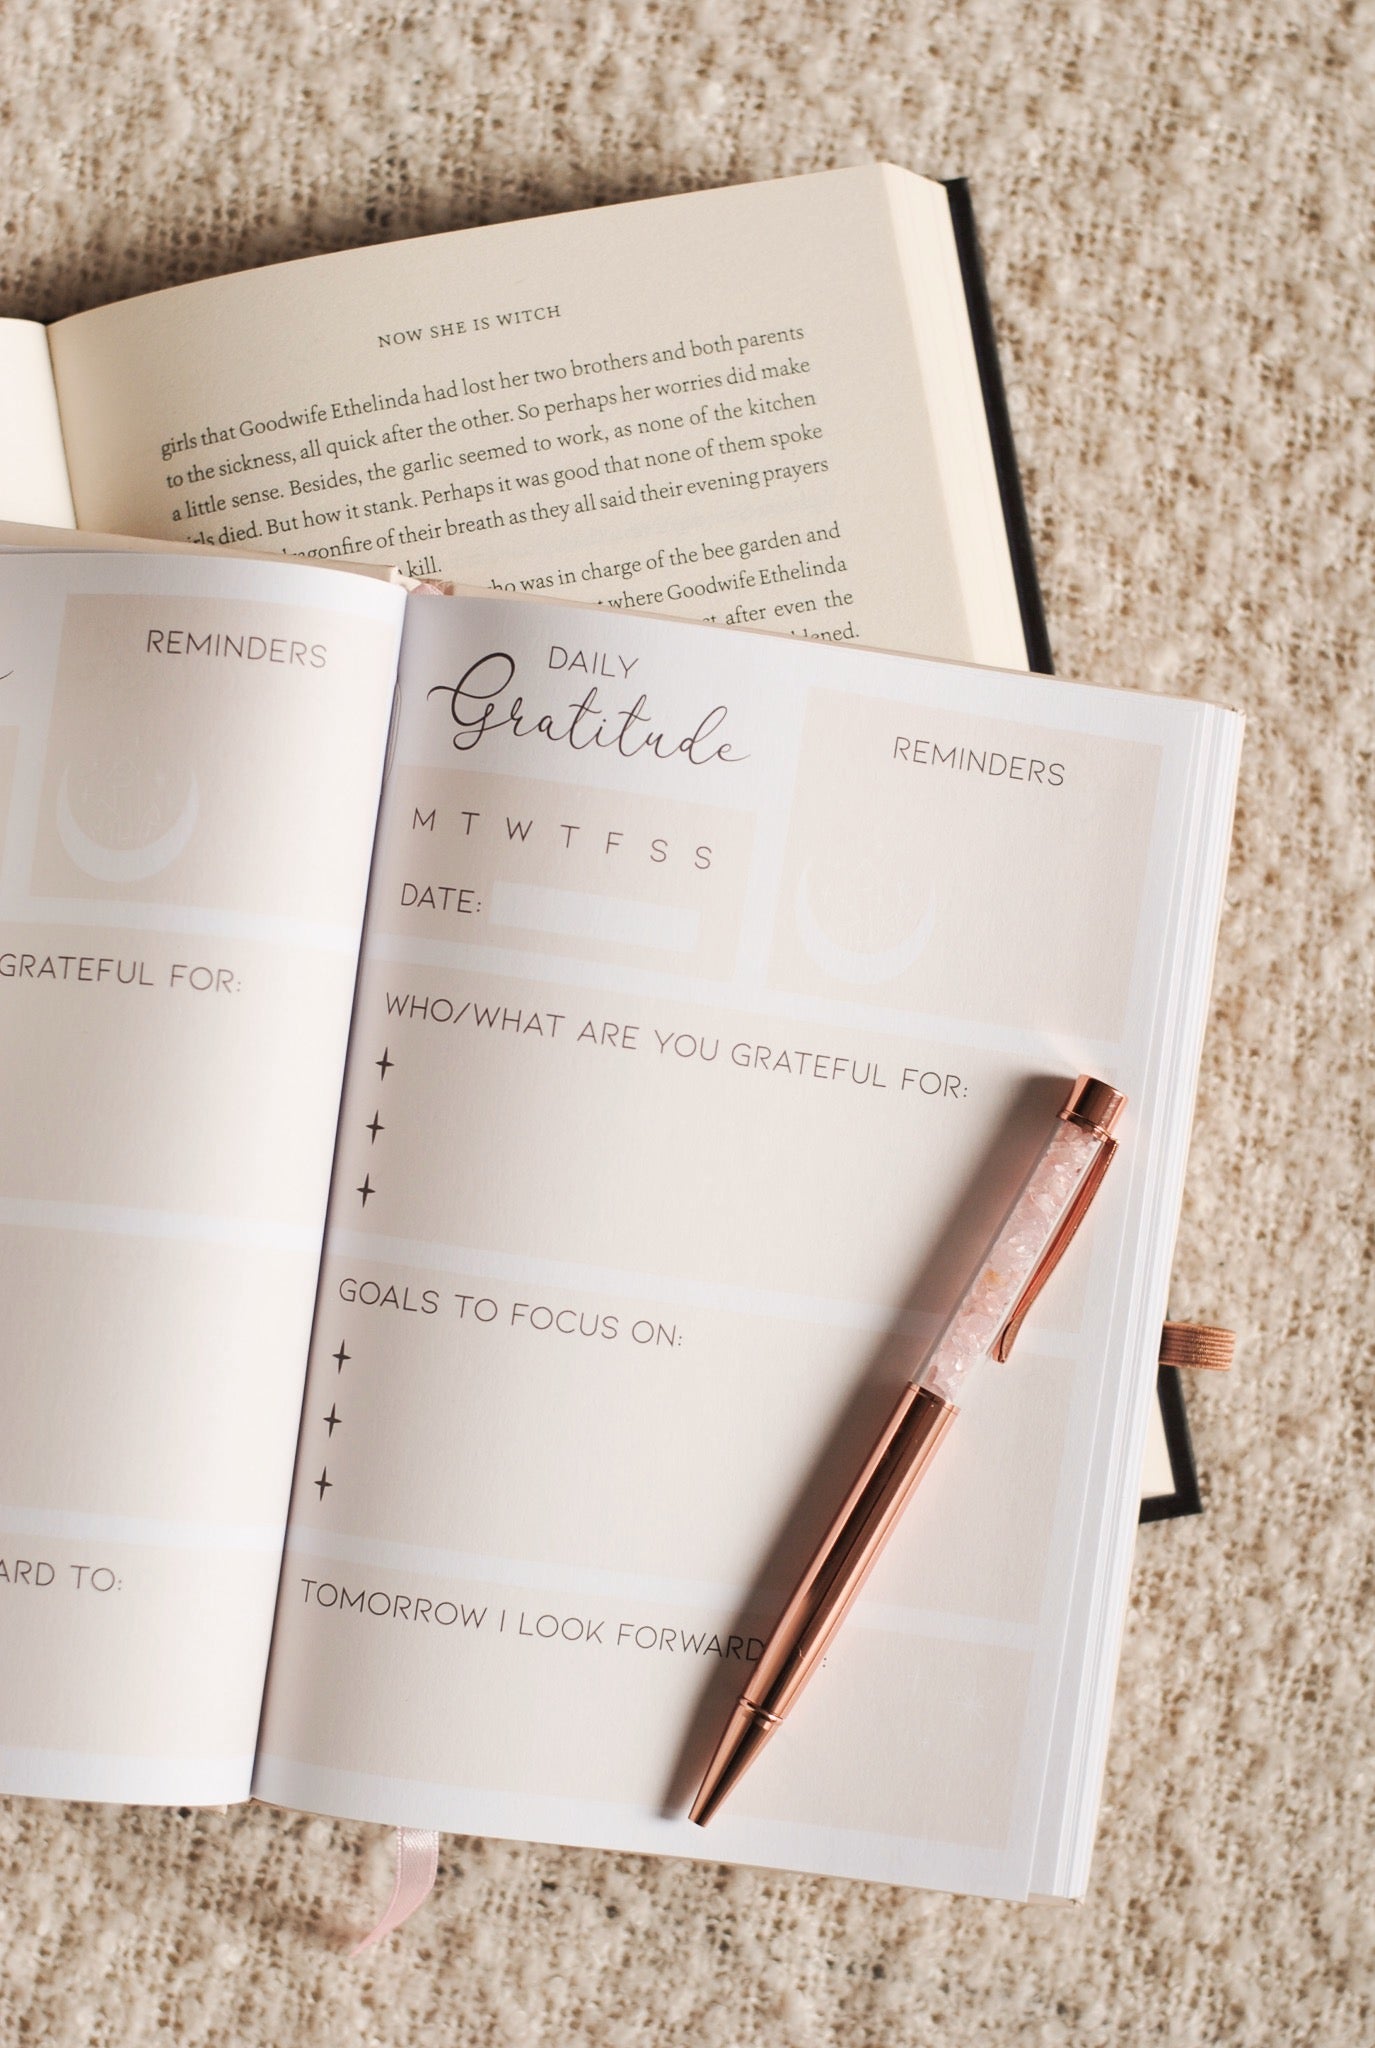 NOW SHE IS WITCH
girls that Goodwife Ethelinda had lost her two brothers and both parents
to the sickness, all quick after the other. So perhaps her worries did make
a little sense. Besides, the garlic seemed to work, as none of the kitchen
died. But how it stank. Perhaps it was good that none of them spoke
of their breath as they all said their evening prayers
kill.
was in charge of the bee garden and
where Goodwife Ethelinda
after even the
REMINDERS
GRATEFUL FOR:
TO:
DAILY
Gratitude
REMINDERS
M T W T F S S
DATE:
WHO/WHAT ARE YOU GRATEFUL FOR:
GOALS TO FOCUS ON:
TOMORROW I LOOK FORWARD :